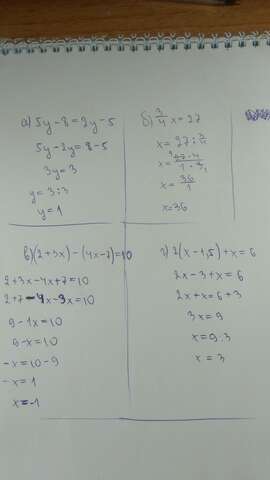 а) 5y-8=2y-5
5y-2y=8-5
3y=3
y=3:3
y=1
б) 3/4 x=27
x=27:3/4
x=27·4/1·3
x=36/1
x=36
в) (2+3x)-(4x-7)=10
2+3x-4x+7=10
2+7-4x-3x=10
9-1x=10
9-x=10
-x=10-9
-x=1
x=-1
г) 2(x-1,5)+x=6
2x-3+x=6
2x+x=6+3
3x=9
x=9:3
x=3